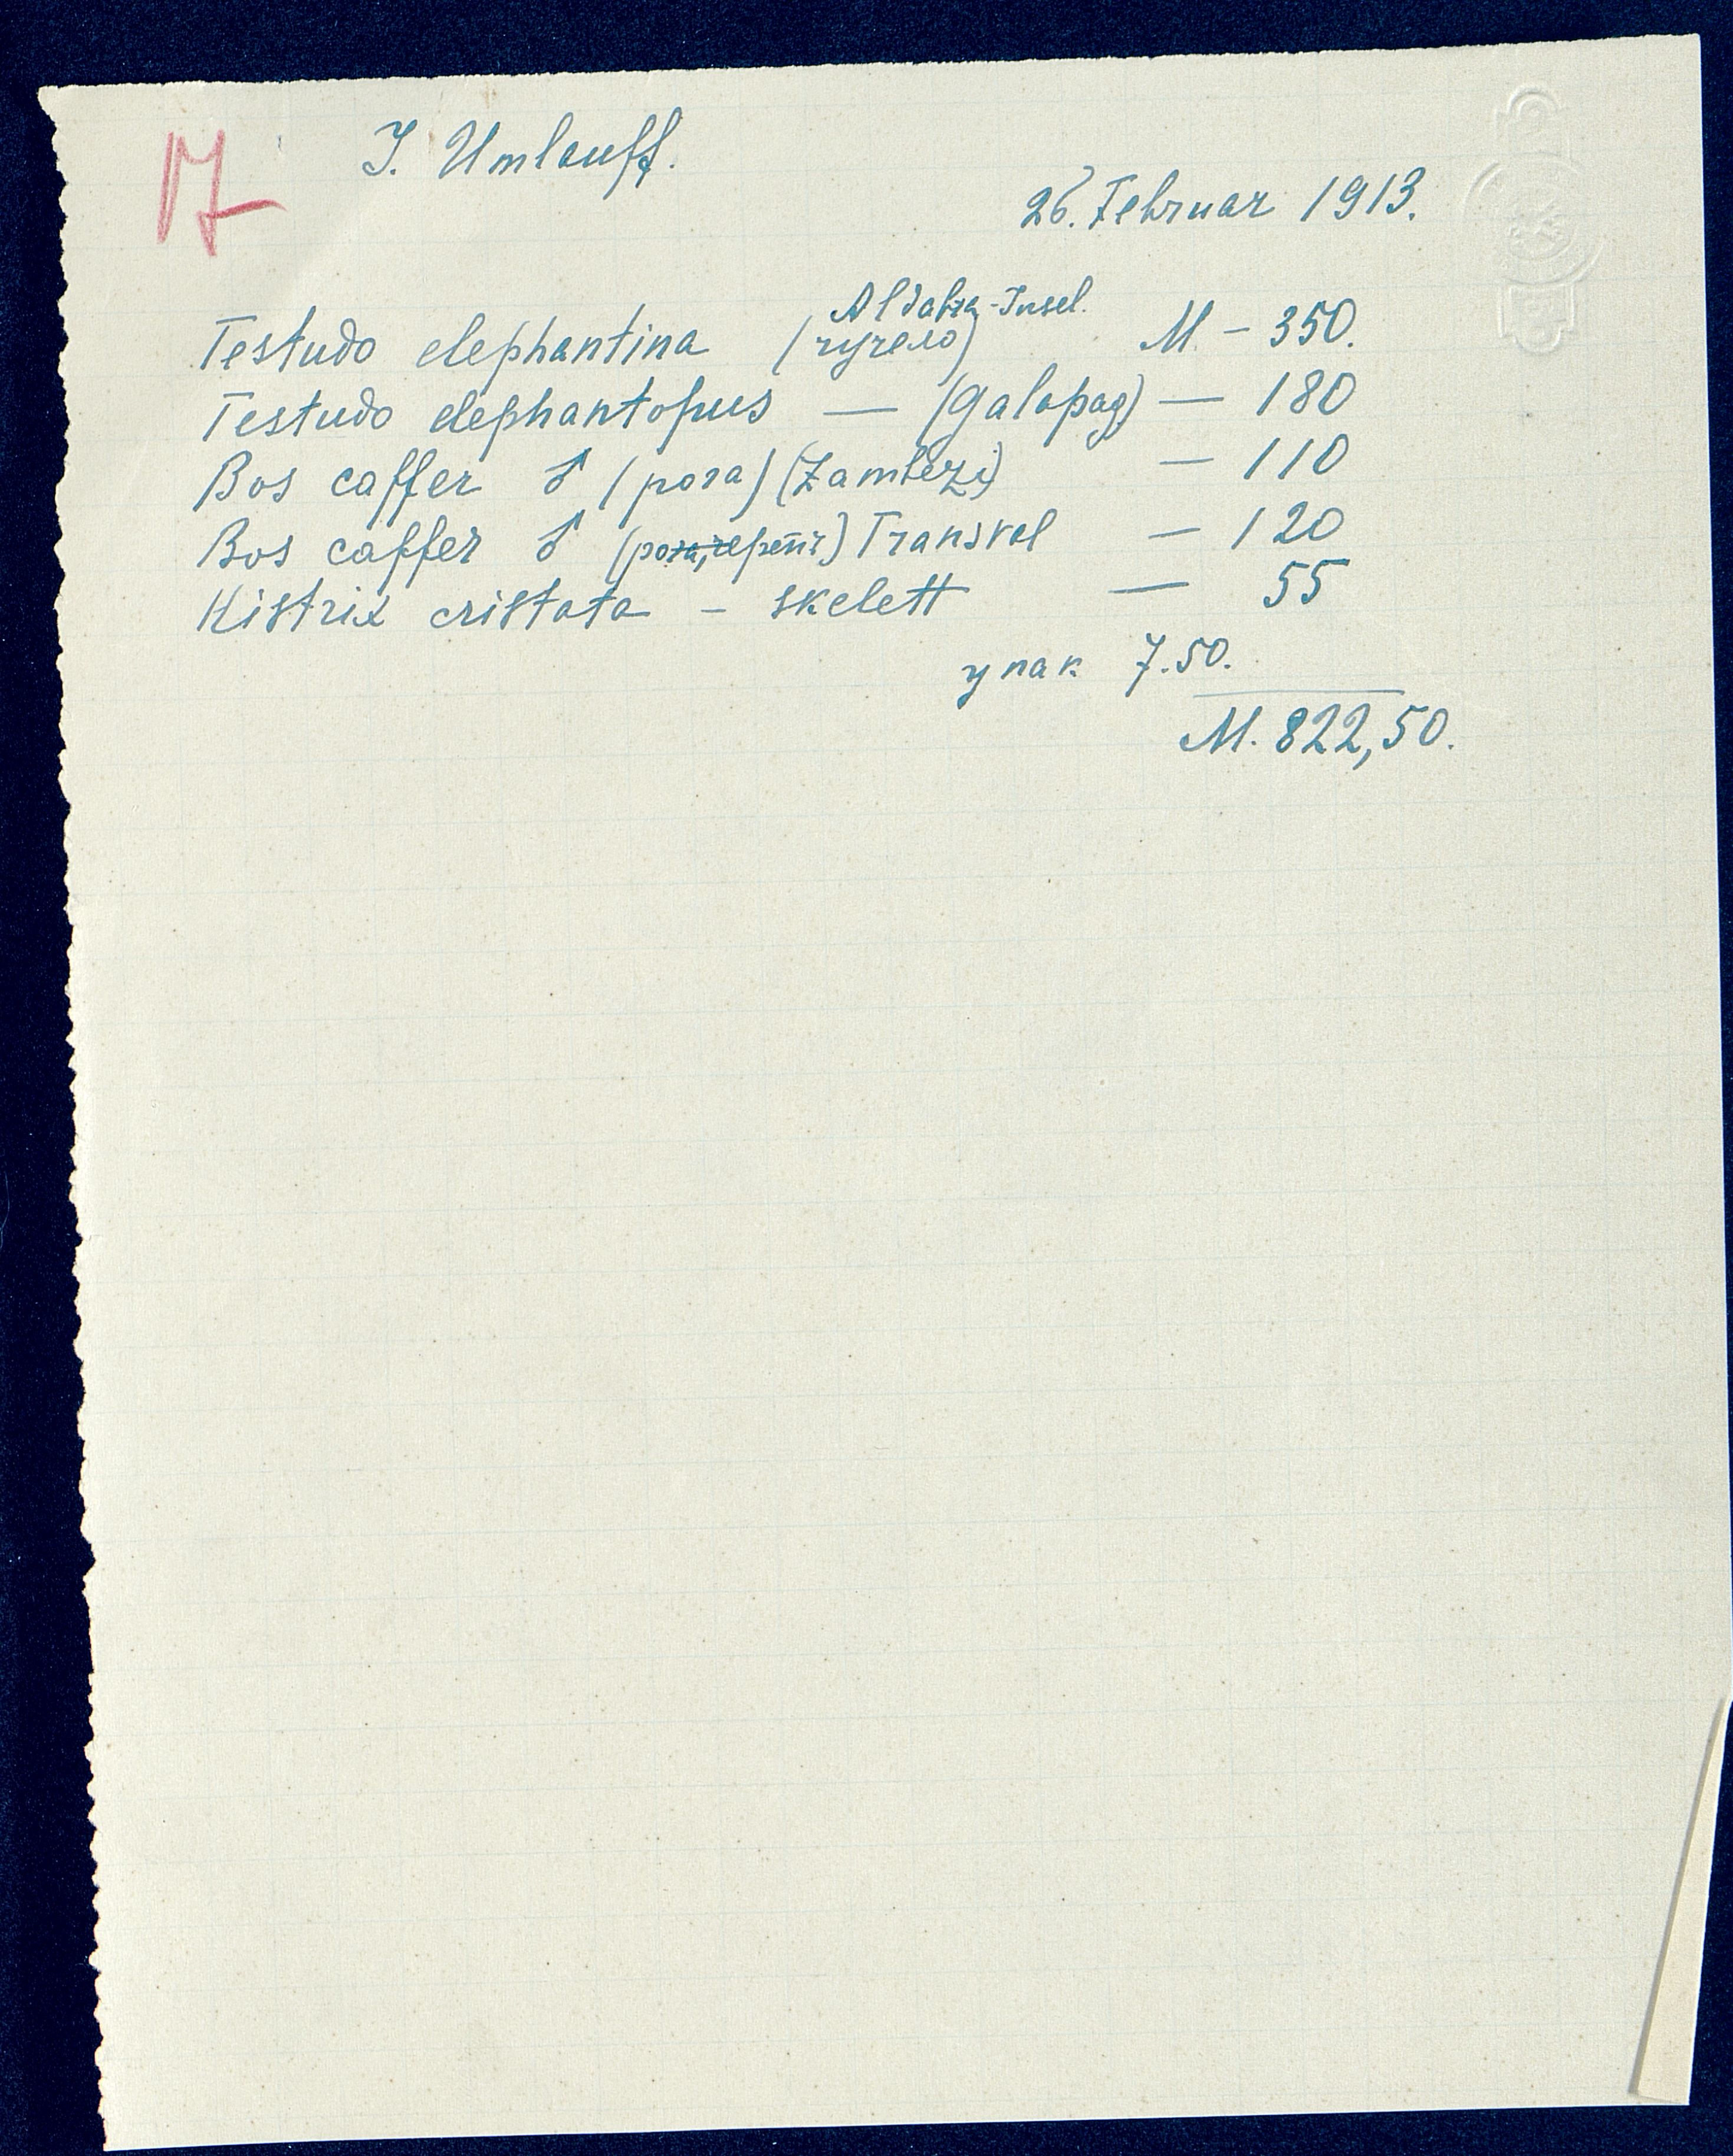 17
J. Umlauff.
26. Februar 1913.
Aldabra-Insel.
Testudo elephantina (чучело) M - 350.
Testudo elephantopus — (Galapag) — 180
Bos caffer ♂ (рога) (Zambezi) — 110
Bos caffer ♂ (рога, череп) Transval — 120
Histrix cristata - skelett — 55
упак 7.50.
M. 822,50.